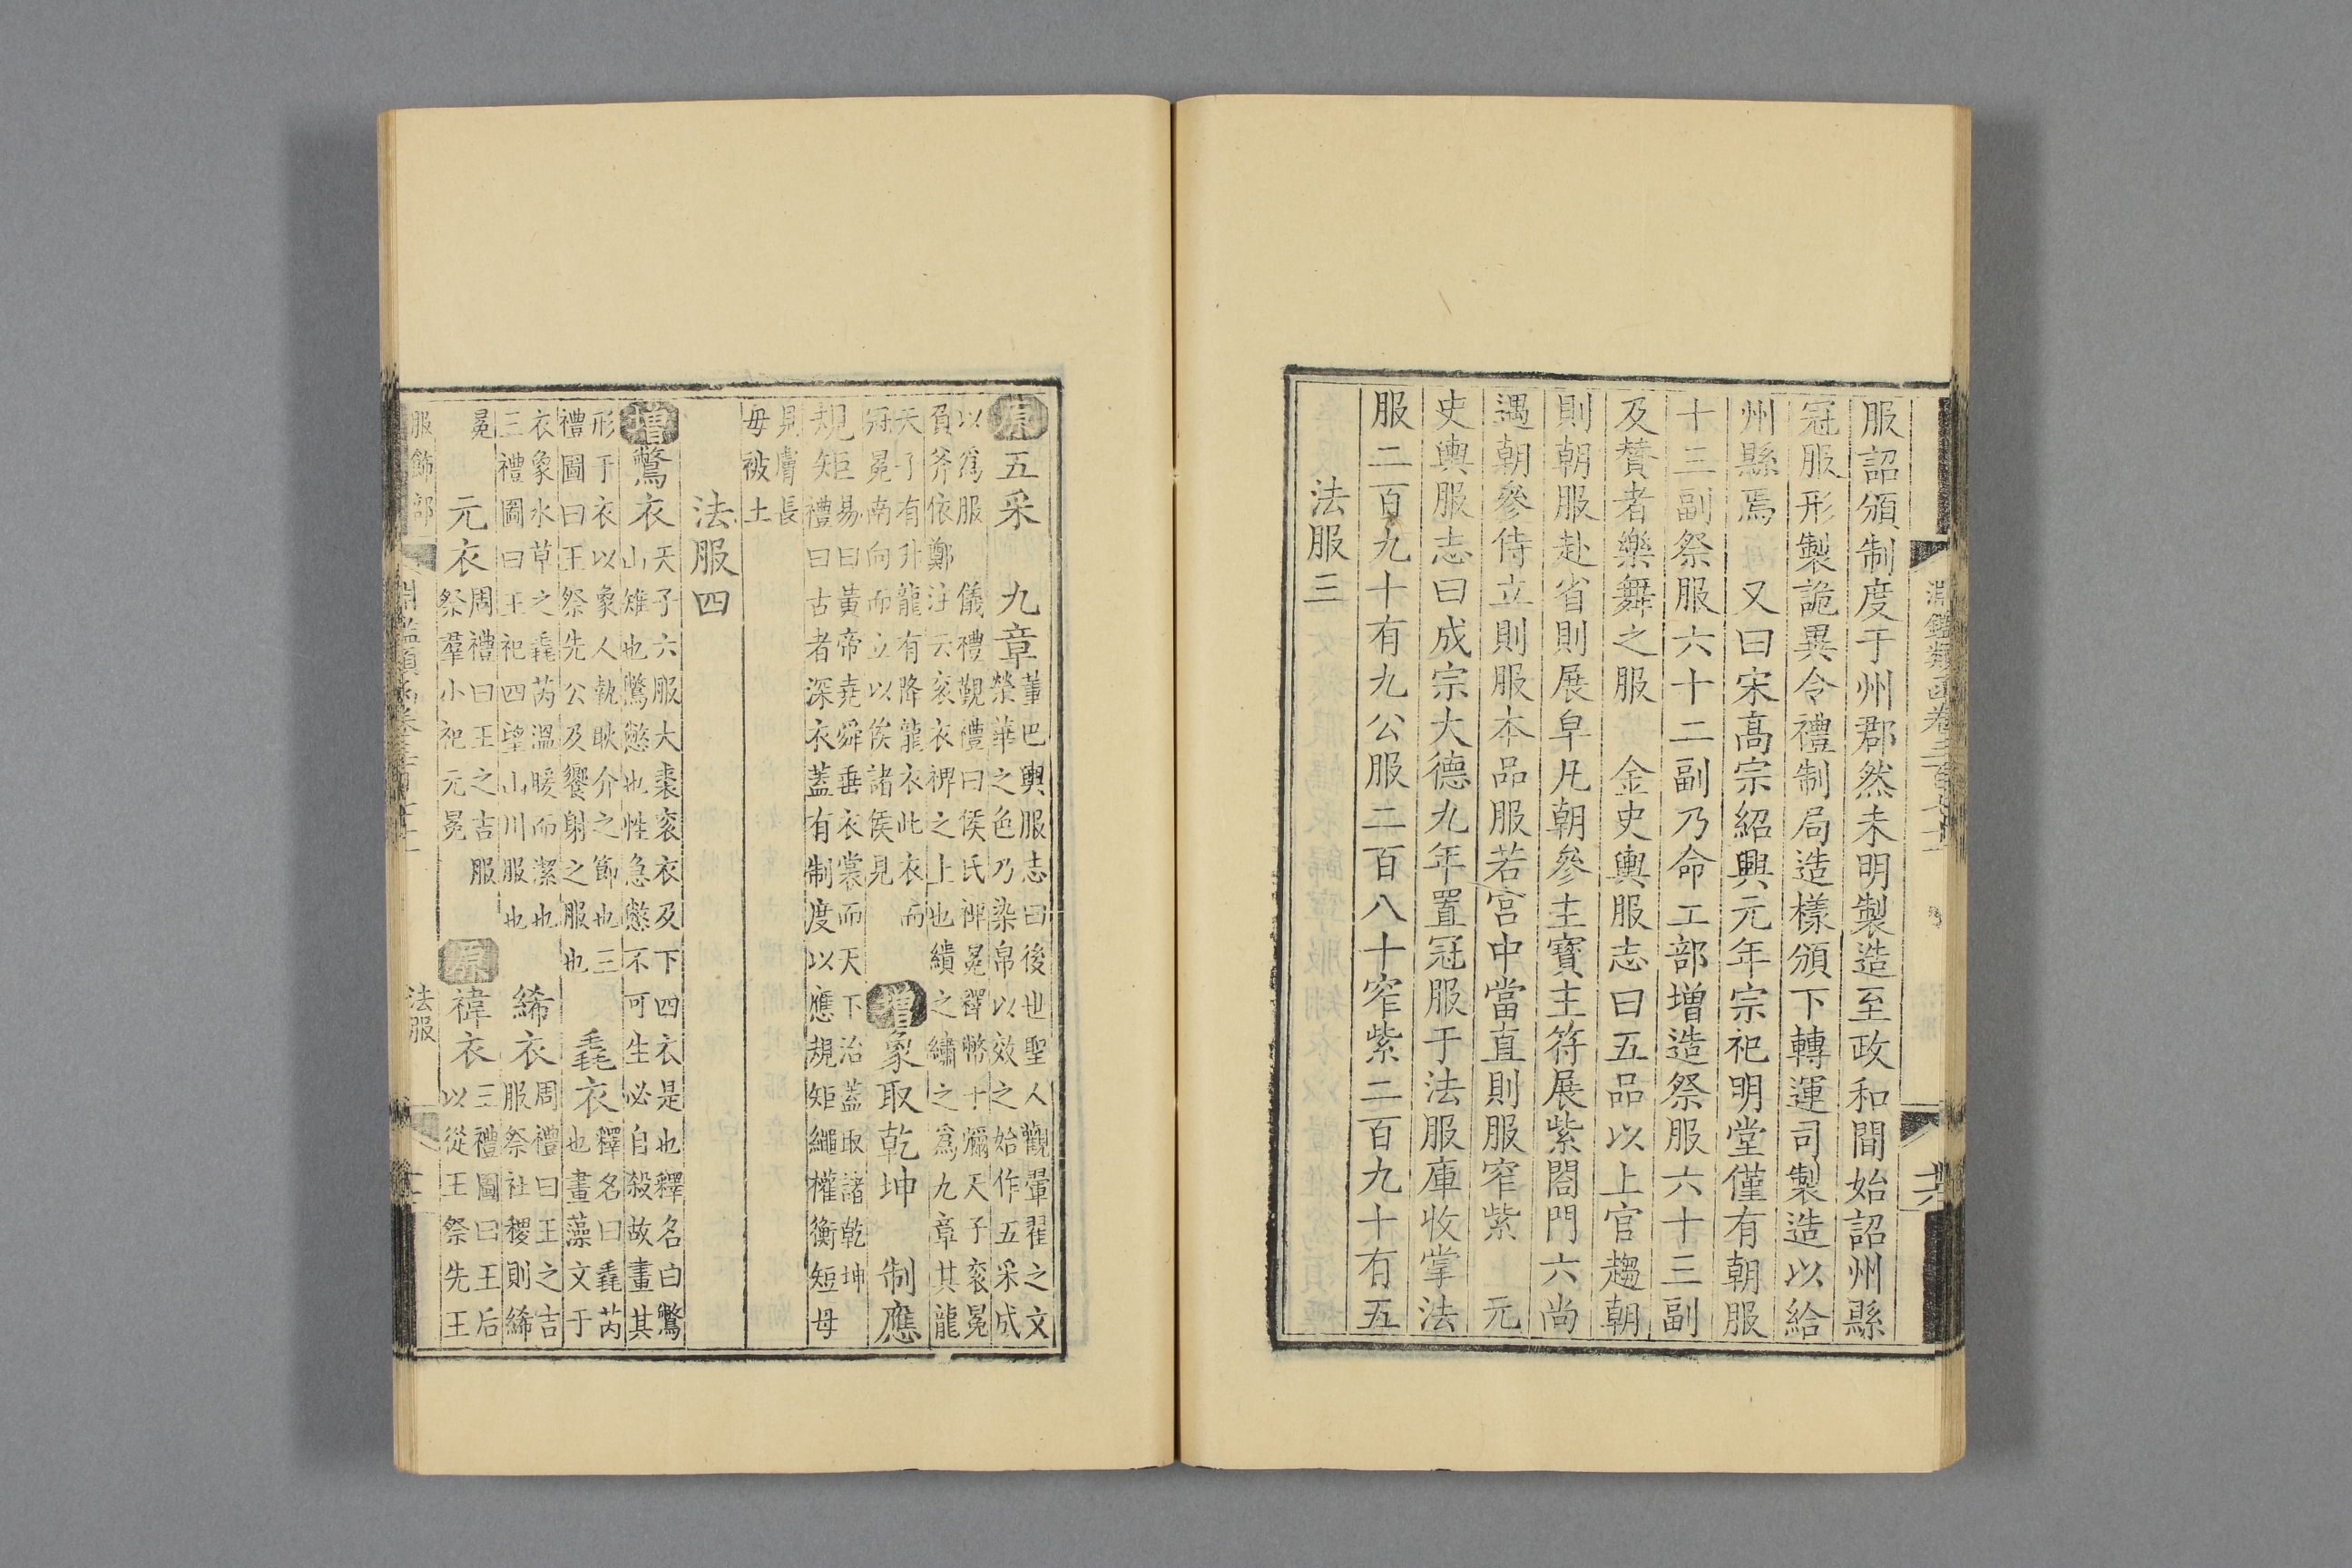 淵鑑類函卷三百七十
服詔頒制度于州郡然未明製造至政和間始詔州縣
冠服形製詭異令禮制局造樣頒下轉運司製造以給
州縣焉　又曰宋髙宗紹興元年宗祀明堂僅有朝服
十三副祭服六十二副乃命工部增造祭服六十三副
及贊者樂舞之服　金史輿服志曰五品以上官趨朝
則朝服赴省則展皁凡朝參主寶主符展紫閤門六尚
遇朝參侍立則服本品服若宮中當直則服窄紫　元
史輿服志曰成宗大德九年置冠服于法服庫收掌法
服二百九十有九公服二百八十窄紫二百九十有五
法服三
原五采　九章董巴輿服志曰後世聖人觀翬翟之文
榮華之色乃染帛以效之始作五采成
以爲服　儀禮覲禮曰侯氏裨冕釋幣于禰天子袞冕
負斧依鄭注云袞衣裨之上也繢之繡之爲九章其龍
天子有升龍有降龍衣此衣而
冠冕南向而立以俟諸侯見
增象取乾坤　制應
規矩易曰黃帝堯舜垂衣裳而天下治蓋取諸乾坤
禮曰古者深衣蓋有制度以應規矩繩權衡短毋
見膚長
毋被土
法服四
增鷩衣天子六服大裘袞衣及下四衣是也釋名曰鷩
山雉也鷩憋也性急憋不可生必自殺故畫其
形于衣以象人執耿介之節也三
禮圖曰王祭先公及饗射之服也
毳衣釋名曰毳芮
也畫藻文于
衣象水草之毳芮溫暖而潔也
三禮圖曰王祀四望山川服也
絺衣周禮曰王之吉
服祭社稷則絺
冕
元衣周禮曰王之吉服
祭羣小祀元冕
原褘衣三禮圖曰王后
以從王祭先王
服飾部
法服